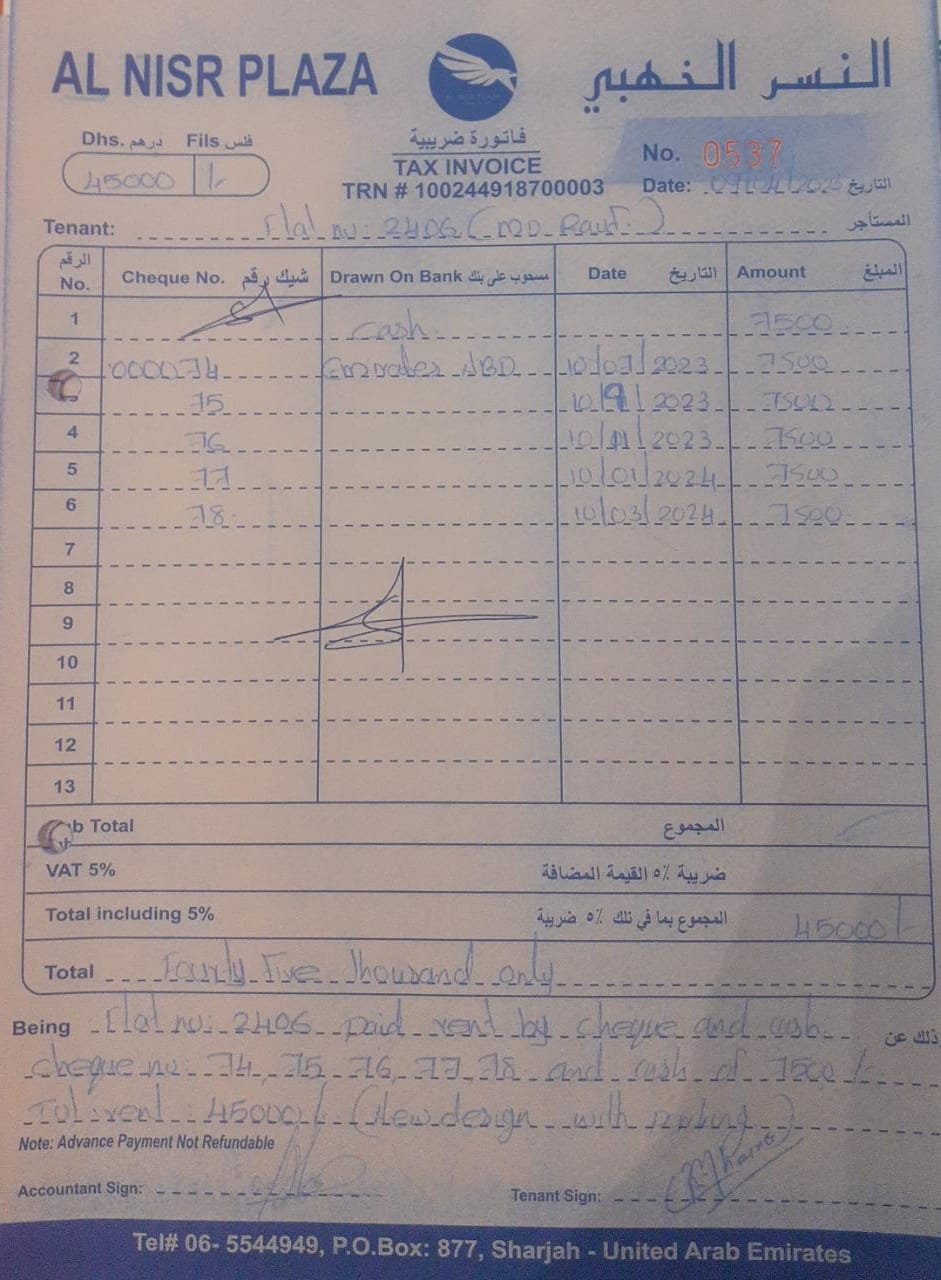 AL NISR PLAZA
النسر الذهبي
Dhs. درهم Fils فلس
45000 /-
فاتورة ضريبية
TAX INVOICE
TRN # 100244918700003
No. 0537
Date: التاريخ
Tenant: Flat no: 2406 (MD. Rauf.) المستأجر
الرقم No. Cheque No. شيك رقم Drawn On Bank مسحوب على بنك Date التاريخ Amount المبلغ
1 Cash 7500
2 000074 Emirates NBD 10/07/2023 7500
75 10/9/2023 7500
4 76 10/11/2023 7500
5 77 10/01/2024 7500
6 78 10/03/2024 7500
7
8
9
10
11
12
13
b Total المجموع
VAT 5% ضريبة ٥٪ القيمة المضافة
Total including 5% المجموع بما في تلك ٥٪ ضريبة 45000/-
Total Fourly Five Thousand only
Being Flat no: 2406 paid rent by cheque and cash ذلك عن
cheque no: 74, 75, 76, 77, 78 and cash of 7500/-
Tot: rent: 45000/- (New design with parking)
Note: Advance Payment Not Refundable
Accountant Sign:
Tenant Sign:
Tel# 06- 5544949, P.O.Box: 877, Sharjah - United Arab Emirates